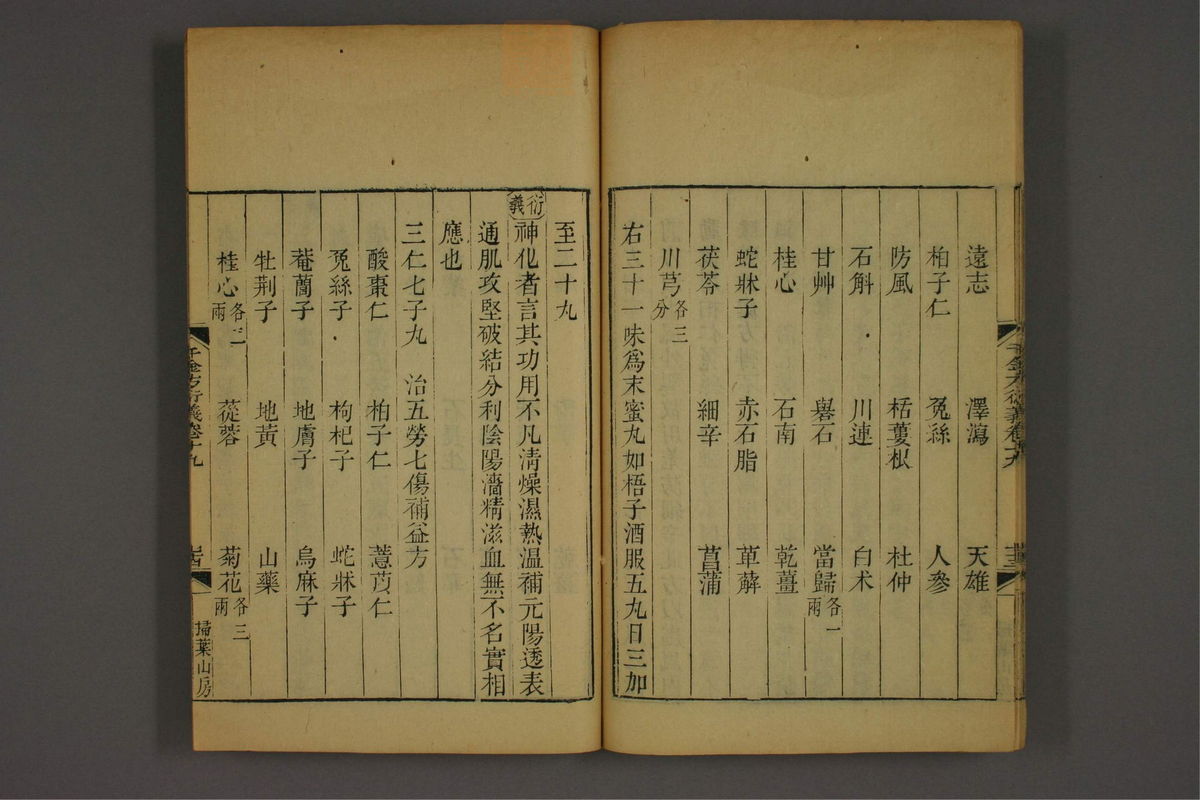 遠志　澤瀉　天雄
柏子仁　兔絲　人參
防風　栝蔞根　杜仲
石斛　川連　白朮
甘艸　礜石　當歸各一兩
桂心　石南　乾薑
蛇牀子　赤石脂　萆薢
茯苓　細辛　菖蒲
川芎各三分
右三十一味爲末蜜丸如梧子酒服五丸日三加
至二十丸
衍義
神化者言其功用不凡淸燥濕熱温補元陽透表
通肌攻堅破結分利陰陽濇精滋血無不名實相
應也
三仁七子丸　治五勞七傷補益方
酸棗仁　柏子仁　薏苡仁
兔絲子　枸杞子　蛇牀子
菴䕡子　地膚子　烏麻子
牡荆子　地黃　山藥
桂心各二兩　蓯蓉　菊花各三兩
千金方衍義卷十九
掃葉山房